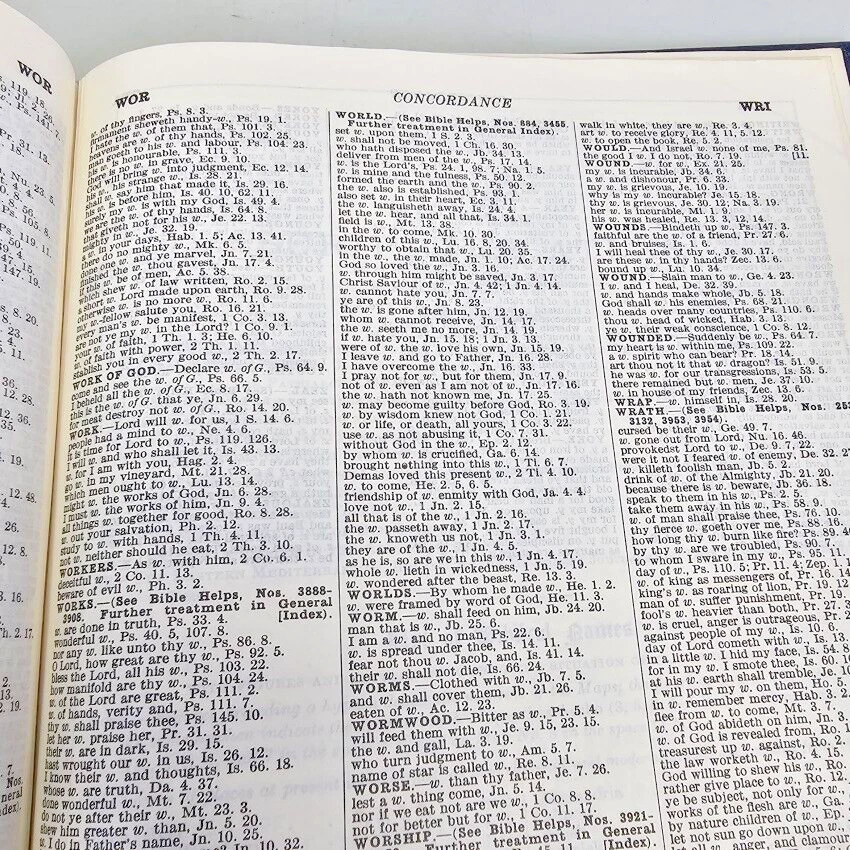 WOR
WOR
CONCORDANCE
WRI
w. of thy fingers, Ps. 8. 3.
firmament sheweth handy-w., Ps. 19. 1.
hate the w. of them that, Ps. 101. 3.
heavens are w. of thy hands, Ps. 102. 25.
man goeth to his w. and labour, Ps. 104. 23.
his w. is honourable, Ps. 111. 3.
there is no w. in grave, Ec. 9. 10.
God will bring w. into judgment, Ec. 12. 14.
his w. his strange w., Is. 28. 21.
shall w. say him that made it, Is. 29. 16.
his w. is before him, Is. 40. 10, 62. 11.
surely my w. is with my God, Is. 49. 4.
we are w. of thy hands, Is. 64. 8.
giveth him not for his w., Je. 22. 13.
mighty in w., Je. 32. 19.
a w. in your days, Hab. 1. 5; Ac. 13. 41.
there do no mighty w., Mk. 6. 5.
done one w. and ye marvel, Jn. 7. 21.
finished the w. thou gavest, Jn. 17. 4.
if this w. be of men, Ac. 5. 38.
which shew w. of law written, Ro. 2. 15.
a short w. Lord upon earth, Ro. 9. 28.
otherwise w. is no more w., Ro. 11. 6.
my w.-fellow salute you, Ro. 16. 21.
every man's w. be manifest, 1 Co. 3. 13.
are not ye my w. in the Lord? 1 Co. 9. 1.
your w. of faith, 1 Th. 1. 3; He. 6. 10.
w. of faith with power, 2 Th. 1. 11.
stablish you in every good w., 2 Th. 2. 17.
WORK OF GOD.—Declare w. of G., Ps. 64. 9.
come and see the w. of G., Ps. 66. 5.
I beheld all the w. of G., Ec. 8. 17.
this is the w. of G. that ye, Jn. 6. 29.
for meat destroy not w. of G., Ro. 14. 20.
WORK.—Lord will w. for us, 1 S. 14. 6.
people had a mind to w., Ne. 4. 6.
it is time for Lord to w., Ps. 119. 126.
I will w. and who shall let it, Is. 43. 13.
w. for I am with you, Hag. 2. 4.
go w. in my vineyard, Mt. 21. 28.
which men ought to w., Lu. 13. 14.
might w. the works of God, Jn. 6. 28.
I must w. the works of him, Jn. 9. 4.
all things w. together for good, Ro. 8. 28.
w. out your salvation, Ph. 2. 12.
study to w. with hands, 1 Th. 4. 11.
not w. neither should he eat, 2 Th. 3. 10.
WORKERS.—As w. with him, 2 Co. 6. 1.
deceitful w., 2 Co. 11. 13.
beware of evil w., Ph. 3. 2.
WORKS.—(See Bible Helps, Nos. 3888-
3908. Further treatment in General
w. are done in truth, Ps. 33. 4. [Index).
wonderful w., Ps. 40. 5, 107. 8.
nor any w. like unto thy w., Ps. 86. 8.
O Lord, how great are thy w., Ps. 92. 5.
bless the Lord, all his w., Ps. 103. 22.
how manifold are thy w., Ps. 104. 24.
w. of the Lord are great, Ps. 111. 2.
w. of hands, verity and, Ps. 111. 7.
thy w. shall praise thee, Ps. 145. 10.
let her w. praise her, Pr. 31. 31.
their w. are in dark, Is. 29. 15.
hast wrought our w. in us, Is. 26. 12.
I know their w. and thoughts, Is. 66. 18.
whose w. are truth, Da. 4. 37.
done wonderful w., Mt. 7. 22.
do not ye after their w., Mt. 23. 3.
shew him greater w. than, Jn. 5. 20.
w. I do in Father's name, Jn. 10. 25.
WORLD.—(See Bible Helps, Nos. 884, 3455.
Further treatment in General Index).
set w. upon them, 1 S. 2. 8.
w. shall not be moved, 1 Ch. 16. 30.
who hath disposed the w., Jb. 34. 13.
deliver from men of the w., Ps. 17. 14.
w. is the Lord's, Ps. 24. 1, 98. 7; Na. 1. 5.
w. is mine and the fulness, Ps. 50. 12.
formed the earth and the w., Ps. 90. 2.
the w. also is established, Ps. 93. 1.
also set w. in their heart, Ec. 3. 11.
the w. languisheth away, Is. 24. 4.
let the w. hear, and all that, Is. 34. 1.
field is w., Mt. 13. 38.
in the w. to come, Mk. 10. 30.
children of this w., Lu. 16. 8, 20. 34.
worthy to obtain that w., Lu. 20. 35.
in the w., the w. made, Jn. 1. 10; Ac. 17. 24.
God so loved the w., Jn. 3. 16.
w. through him might be saved, Jn. 3. 17.
Christ Saviour of w., Jn. 4. 42; 1 Jn. 4. 14.
w. cannot hate you, Jn. 7. 7.
ye are of this w., Jn. 8. 23.
the w. is gone after him, Jn. 12. 19.
whom w. cannot receive, Jn. 14. 17.
the w. seeth me no more, Jn. 14. 19.
if w. hate you, Jn. 15. 18; 1 Jn. 3. 13.
were of the w. love his own, Jn. 15. 19.
I leave w. and go to Father, Jn. 16. 28.
I have overcome the w., Jn. 16. 33.
I pray not for w., but for them, Jn. 17. 9.
not of w. even as I am not of w., Jn. 17. 16.
the w. hath not known me, Jn. 17. 25.
w. may become guilty before God, Ro. 3. 19.
w. by wisdom knew not God, 1 Co. 1. 21.
w. or life, or death, all yours, 1 Co. 3. 22.
use w. as not abusing it, 1 Co. 7. 31.
without God in the w., Ep. 2. 12.
by whom w. is crucified, Ga. 6. 14.
brought nothing into this w., 1 Ti. 6. 7.
Demas loved this present w., 2 Ti. 4. 10.
w. to come, He. 2. 5, 6. 5.
friendship of w. enmity with God, Ja. 4. 4.
love not w., 1 Jn. 2. 15.
all that is of the w., 1 Jn. 2. 16.
the w. passeth away, 1 Jn. 2. 17.
the w. knoweth us not, 1 Jn. 3. 1.
they are of the w., 1 Jn. 4. 5.
as he is, so are we in this w., 1 Jn. 4. 17.
whole w. lieth in wickedness, 1 Jn. 5. 19.
w. wondered after the beast, Re. 13. 3.
WORLDS.—By whom he made w., He. 1. 2.
w. were framed by word of God, He. 11. 3.
WORM.—w. shall feed on him, Jb. 24. 20.
man that is w., Jb. 25. 6.
I am a w. and no man, Ps. 22. 6.
w. is spread under thee, Is. 14. 11.
fear not thou w. Jacob, and, Is. 41. 14.
their w. shall not die, Is. 66. 24.
WORMS.—Clothed with w., Jb. 7. 5.
and w. shall cover them, Jb. 21. 26.
eaten of w., Ac. 12. 23.
WORMWOOD.—Bitter as w., Pr. 5. 4.
will feed them with w., Je. 9. 15, 23. 15.
the w. and gall, La. 3. 19.
who turn judgment to w., Am. 5. 7.
name of star is called w., Re. 8. 11.
WORSE.—w. than thy father, Je. 7. 26.
lest a w. thing come, Jn. 5. 14.
nor if we eat not are we w., 1 Co. 8. 8.
not for better but for w., 1 Co. 11. 17.
WORSHIP.—(See Bible Helps, Nos. 3921-
Further treatment in General
walk in white, they are w., Re. 3. 4.
art w. to receive glory, Re. 4. 11, 5. 12.
w. to open the book, Re. 5. 2.
WOULD.—And Israel w. none of me, Ps. 81.
the good I w. I do not, Ro. 7. 19. [11.
WOUND.—w. for w., Ex. 21. 25.
my w. is incurable, Jb. 34. 6.
a w. and dishonour, Pr. 6. 33.
my w. is grievous, Je. 10. 19.
why is my w. incurable? Je. 15. 18.
thy w. is grievous, Je. 30. 12; Na. 3. 19.
her w. is incurable, Mi. 1. 9.
his w. was healed, Re. 13. 3, 12, 14.
WOUNDS.—Bindeth up w., Ps. 147. 3.
faithful are the w. of a friend, Pr. 27. 6.
w. and bruises, Is. 1. 6.
I will heal thee of thy w., Je. 30. 17.
are these w. in thy hands? Zec. 13. 6.
bound up w., Lu. 10. 34.
WOUND.—Slain man to w., Ge. 4. 23.
I w. and I heal, De. 32. 39.
w. and hands make whole, Jb. 5. 18.
God shall w. his enemies, Ps. 68. 21.
w. heads over many countries, Ps. 110. 6.
thou w. head of wicked, Hab. 3. 13.
ye w. their weak conscience, 1 Co. 8. 12.
WOUNDED.—Suddenly be w., Ps. 64. 7.
my heart is w. within me, Ps. 109. 22.
a w. spirit who can bear? Pr. 18. 14.
art thou not it that w. dragon? Is. 51. 9.
he was w. for our transgressions, Is. 53. 5.
there remained but w. men, Je. 37. 10.
w. in house of my friends, Zec. 13. 6.
WRAP.—w. himself in, Is. 28. 20.
WRATH.—(See Bible Helps, Nos. 253
3132, 3953, 3954).
cursed be their w., Ge. 49. 7.
w. gone out from Lord, Nu. 16. 46.
provokedst Lord to w., De. 9. 7, 22.
were it not I feared w. of enemy, De. 32. 27
w. killeth foolish man, Jb. 5. 2.
drink of w. of the Almighty, Jb. 21. 20.
because there is w. beware, Jb. 36. 18.
speak to them in his w., Ps. 2. 5.
take them away in his w., Ps. 58. 9.
w. of man shall praise thee, Ps. 76. 10.
thy fierce w. goeth over me, Ps. 88. 16.
how long thy w. burn like fire? Ps. 89. 46
by thy w. are we troubled, Ps. 90. 7.
to whom I sware in my w., Ps. 95. 11.
day of w., Ps. 110. 5; Pr. 11. 4; Zep. 1. 1
w. of king as messengers of, Pr. 16. 14
king's w. as roaring of lion, Pr. 19. 12
man of w. suffer punishment, Pr. 19
fool's w. heavier than both, Pr. 27. 3
w. is cruel, anger is outrageous, Pr. 2
against people of my w., Is. 10. 6.
day of Lord cometh with w., Is. 13.
in a little w. I hid my face, Is. 54. 8
for in my w. I smote thee, Is. 60. 10
at his w. earth shall tremble, Je. 10
I will pour my w. on them, Ho. 5
in w. remember mercy, Hab. 3. 2.
flee from w. to come, Mt. 3. 7.
w. of God abideth on him, Jn. 3.
w. of God is revealed from, Ro. 1
treasurest up w. against, Ro. 2.
the law worketh w., Ro. 4. 15.
God willing to shew his w., Ro.
rather give place to w., Ro. 12.
ye be subject, not only for w.,
works of the flesh are w., Ga.
by nature children of w., Ep.
let not sun go down upon w.,
let all w., anger, and clamour